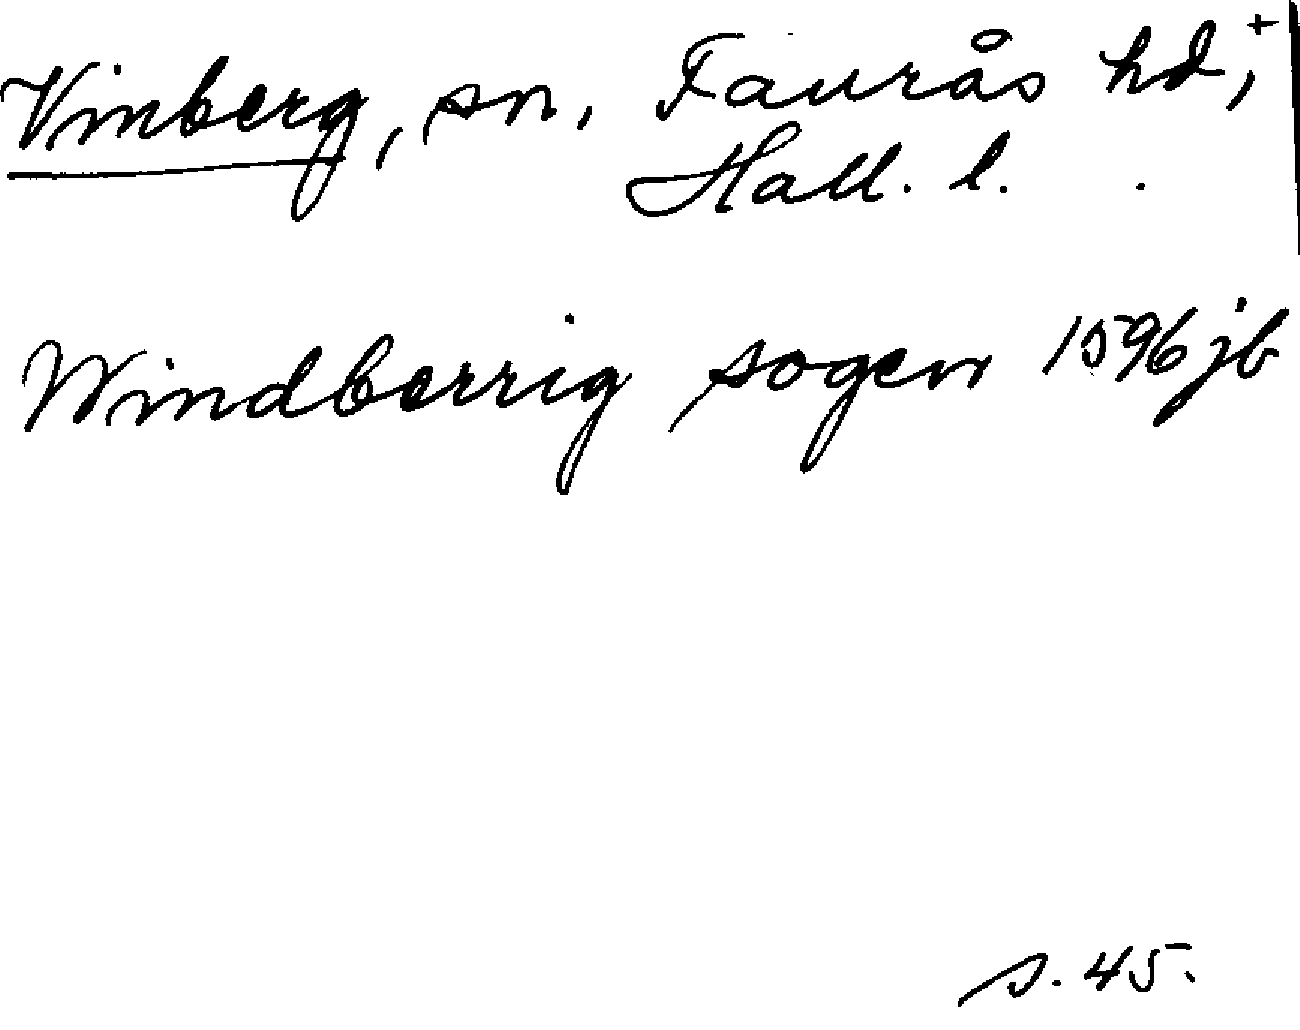 Vinberg, sn, Faurås hd, +
Hall. l.
Windberrig sogen 1596 jb
s. 45.